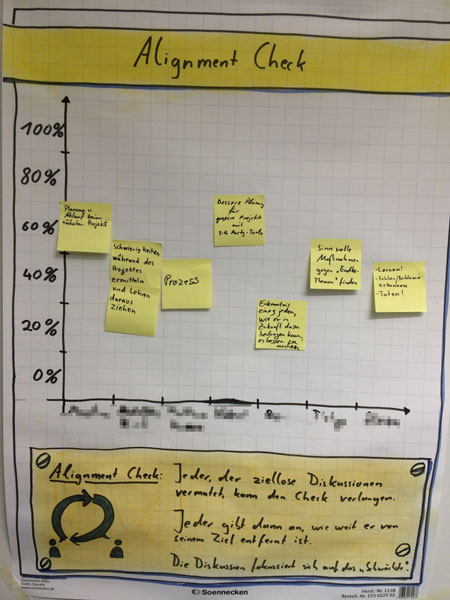 Alignment Check
100%
80%
60%
40%
20%
0%
Planung u.
Ablauf beim
nächsten Projekt
Schwierigkeiten
während des
Projektes
ermitteln
und Lehren
daraus
ziehen
Prozess
Bessere Planung
für
großen Projekt
mit
3rd Party-Tools
Erkenntnis
eines jeden,
wie er in
Zukunft dazu
beitragen kann,
es besser zu
machen
Sinnvolle
Maßnahmen
gegen
Themen" finden
-Lernen!
-Fehler/Probleme
erkennen
-Taten!
Alignment Check: Jeder, der ziellose Diskussionen
vermutet, kann den Check verlangen.
Jeder gibt dann an, wie weit er von
seinem Ziel entfernt ist.
Die Diskussion fokussiert sich auf das „Schwächste".
Soennecken
Herst.-Nr. 1138